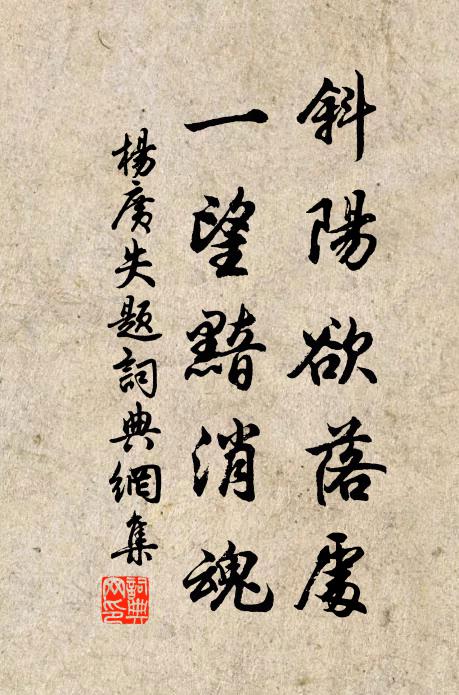 斜陽欲落處
一望黯消魂
楊廣失題詞典網集
詞典
网印